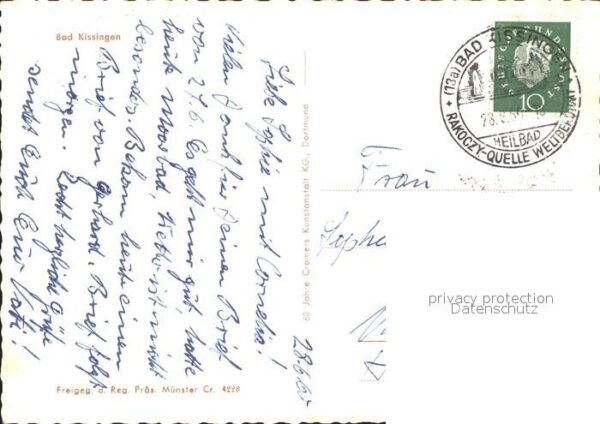 Bad Kissingen
28.6.60
Liebe Sophie mit Cornelia!
Vielen Dank für Deinen Brief
vom 27.6. Es geht mir gut, hatte
heute Moorbad, ist nicht
besonders. Bekam heute einen
Brief von Gerhard. Brief folgt
morgen. Recht herzliche Grüße
sendet Euch Euer
60 Jahre Cramers Kunstanstalt KG., Dortmund
Freigeg. d. Reg. Präs. Münster Cr. 4228
(13a) BAD KISSINGEN
HEILBAD
RAKOCZY-QUELLE WELTBERÜHMT
DEUTSCHE BUNDESPOST
10
Frau
privacy protection
Datenschutz